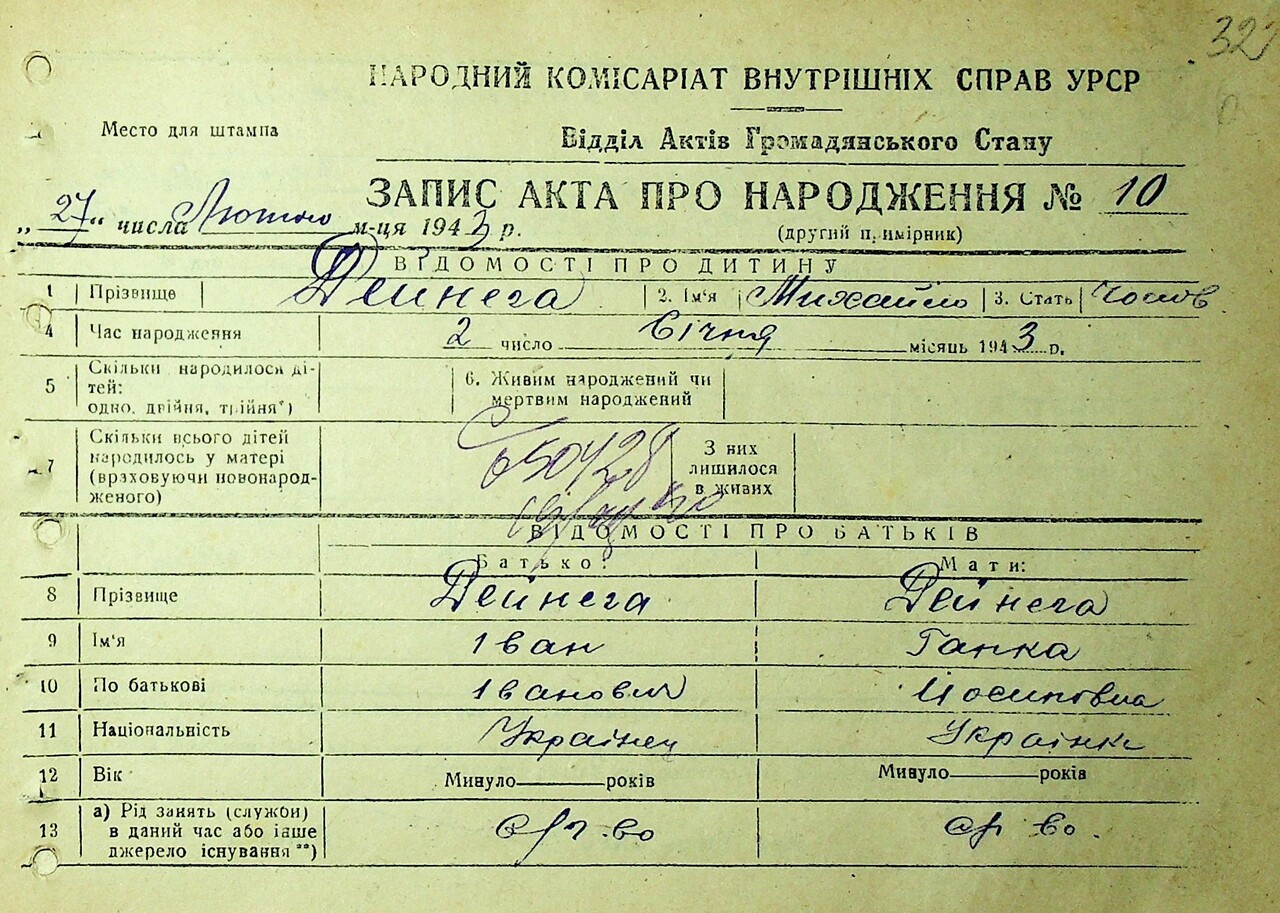 32
НАРОДНИЙ КОМІСАРІАТ ВНУТРІШНІХ СПРАВ УРСР
Место для штампа
Відділ Актів Громадянського Стану
ЗАПИС АКТА ПРО НАРОДЖЕННЯ № 10
„27“ числа Лютого м-ця 1943 р.
(другий примірник)
ВІДОМОСТІ ПРО ДИТИНУ
1 Прізвище Дейнега 2. Ім'я Михайло 3. Стать Чолов
4 Час народження 2 число Січня місяць 1943 р.
5 Скільки народилося ді-
тей:
одно, двійня, трійня*)
6. Живим народжений чи
мертвим народжений
7 Скільки всього дітей
народилось у матері
(враховуючи новонарод-
женого)
650428
З них
лишилося
в живих
ВІДОМОСТІ ПРО БАТЬКІВ
Батько: Мати:
8 Прізвище Дейнега Дейнега
9 Ім'я Іван Ганка
10 По батькові Іванович Йосиповна
11 Національність Українец Українка
12 Вік Минуло років Минуло років
13 а) Рід занять (служби)
в даний час або інше
джерело існування **)